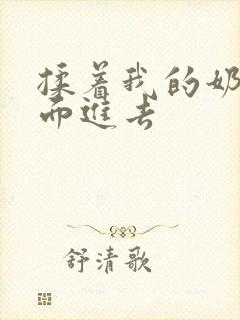 揉着我的奶
而进去
舒清歌